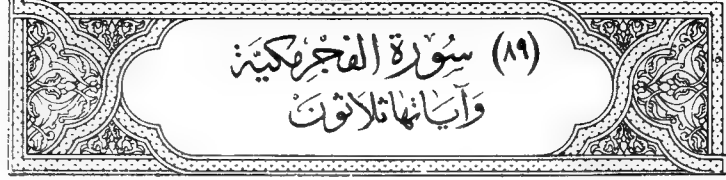 (٨٩) سُورَة الفَجْرِ مَكِيَّة
وَآيَاتهَا ثلَاثونَ